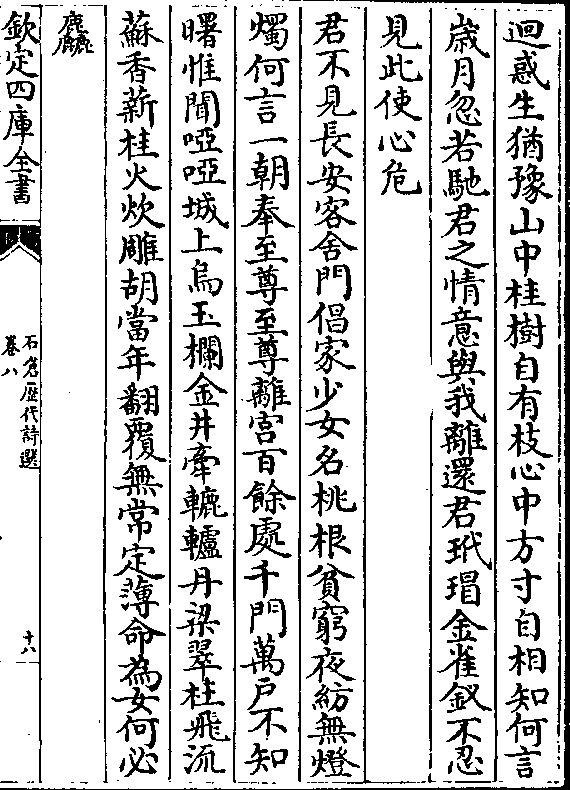 迴惑生猶豫山中桂樹自有枝心中方寸自相知何言
歳月忽若馳君之情意與我離還君玳瑁金雀釵不忍
見此使心危
君不見長安客舍門倡家少女名桃根貧窮夜紡無燈
燭何言一朝奉至尊至尊離宮百餘處千門萬户不知
曙惟聞啞啞城上烏玉欄金井牽轆轤丹梁翠柱飛流
蘇香薪桂火炊雕胡當年翻覆無常定薄命為女何必
麤
欽定四庫全書
石倉歴代詩選
卷八
十八